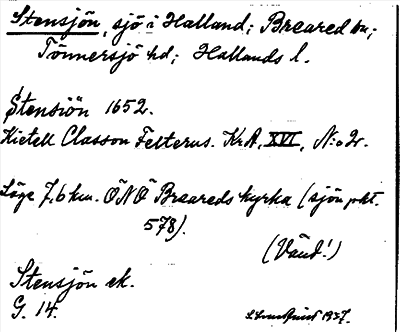 Stensjön, sjö i Halland; Breared sn;
Tönnersjö hd; Hallands l.
Stensiön 1652.
Kietell Classon Felterus. KrA, XVI, N:o 2.
Läge 7,6 km. ÖNÖ Breareds kyrka (sjön pkt.
578).
(Vänd!)
Stensjön ek.
G. 14.
1937.